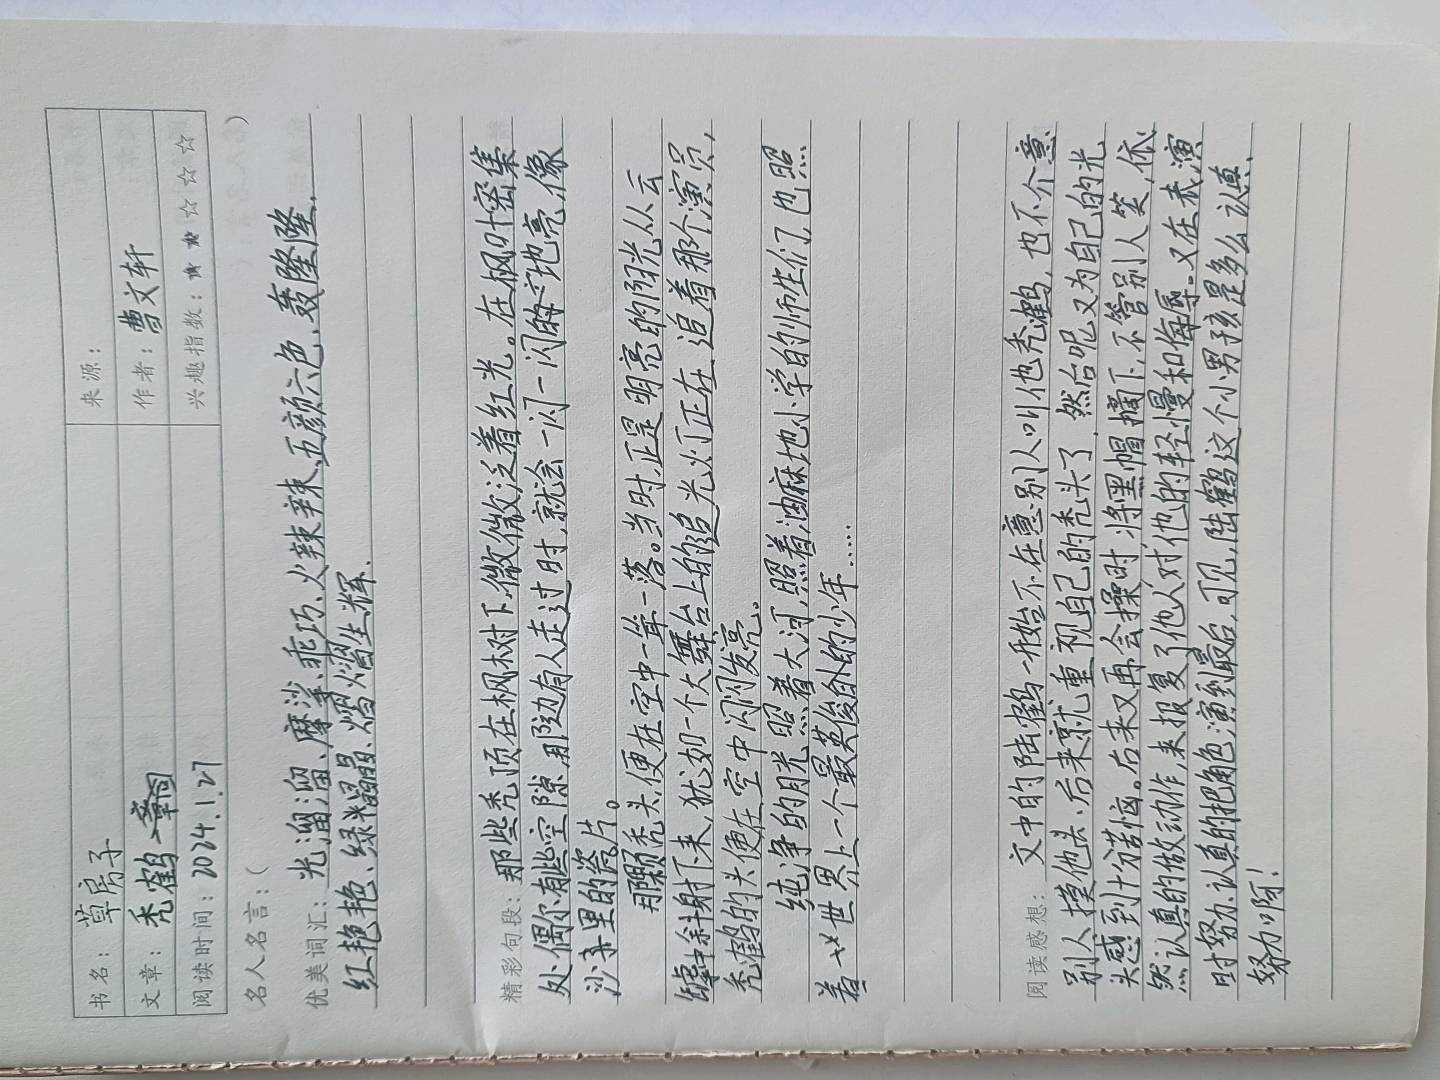 书名：草房子
来源：
文章：秃鹤 一章回
作者：曹文轩
阅读时间：2024.1.27
兴趣指数：★★☆☆☆
名人名言：（ ）
优美词汇：光溜溜、摩挲、乖巧、火辣辣、五颜六色、轰隆隆、
红艳艳、绿晶晶、熠熠生辉、
精彩句段：那些秃顶在枫树下，微微泛着红光。在枫叶密集
处偶尔有些空隙，那边有人走过时，就会一闪一闪的地亮，像
沙弄里的瓷片。
那颗秃头，便在空中一耸一落。当时，正是明亮的阳光从云
罅中斜射下来，犹如一个大舞台上的追光灯正在追着那个演员，
秃鹤的头便在空中闪闪发亮。
纯净的月光照着大河，照着油麻地小学的师生们，也照
着世界上一个最英俊的少年……
阅读感想：文中的陆鹤一开始不在意别人叫他秃鹤，也不介意
别人摸他头，后来就重视自己的秃头了，然后呢又为自己的光
头感到十分苦恼。后来又再会操时将黑帽摘下，不管别人笑，依
然认真的做动作，来报复了他人对他的轻慢和侮辱。又在表演
时努力、认真的把角色演到最后，可见，陆鹤这个小男孩是多么认真、
努力啊！